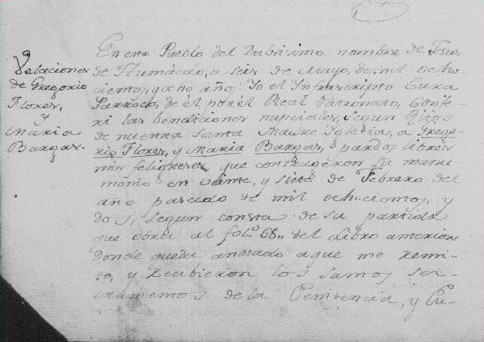 Velaciones
de Gregorio
Flores,
y
Maria
Bargas.
En este Pueblo del Dulcisimo nombre de Jesus
de Humacao, a seis de Mayo, de mil ocho-
cientos, y ocho años: Yo el Infrascripto Cura
Parroco, de el por el Real Patronato, Confe-
ri las bendiciones nupciales, segun Ritos
de nuestra Santa Madre Iglesia, a Grego-
rio Flores, y Maria Bargas, pardos libres
mis feligreses, que contrageron su matri-
monio en veinte, y siete de Febrero del
año pasado de mil ochocientos, y
dos, segun consta de su partida
que obra al folº 68,, del Libro anterior
donde queda anotado a que me remi-
to, y recibieron los Santos Sa-
cramentos de la Penitencia, y Eu-